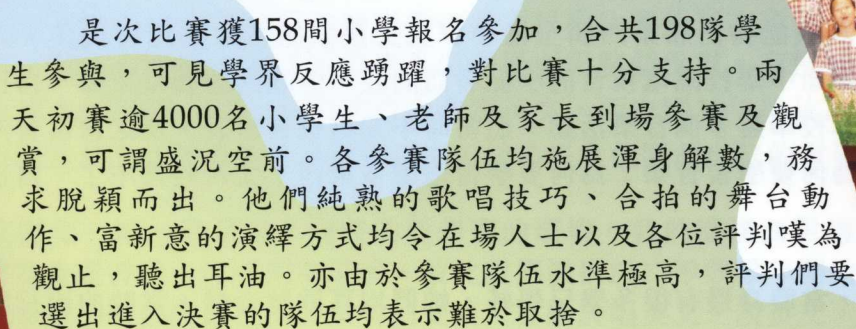 是次比賽獲158間小學報名參加，合共198隊學
生參與，可見學界反應踴躍，對比賽十分支持。兩
天初賽逾4000名小學生、老師及家長到場參賽及觀
賞，可謂盛況空前。各參賽隊伍均施展渾身解數，務
求脫穎而出。他們純熟的歌唱技巧、合拍的舞台動
作、富新意的演繹方式均令在場人士以及各位評判嘆為
觀止，聽出耳油。亦由於參賽隊伍水準極高，評判們要
選出進入決賽的隊伍均表示難於取捨。